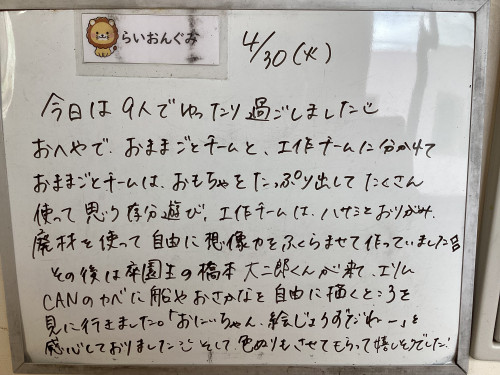 らいおんぐみ
4/30(火)
今日は9人でゆったり過ごしました
おへやで、おままごとチームと、工作チームに分かれて
おままごとチームは、おもちゃをたっぷり出してたくさん
使って思う存分遊び、工作チームは、ハサミとおりがみ、
廃材を使って自由に想像力をふくらませて作っていました
その後は卒園生の橋本大二郎くんが来て、エリム
CANのカベに船やおさかなを自由に描くところを
見に行きました。「おにいちゃん、絵じょうずだねー」と
感心しておりました そして色ぬりもさせてもらって嬉しそうでした!